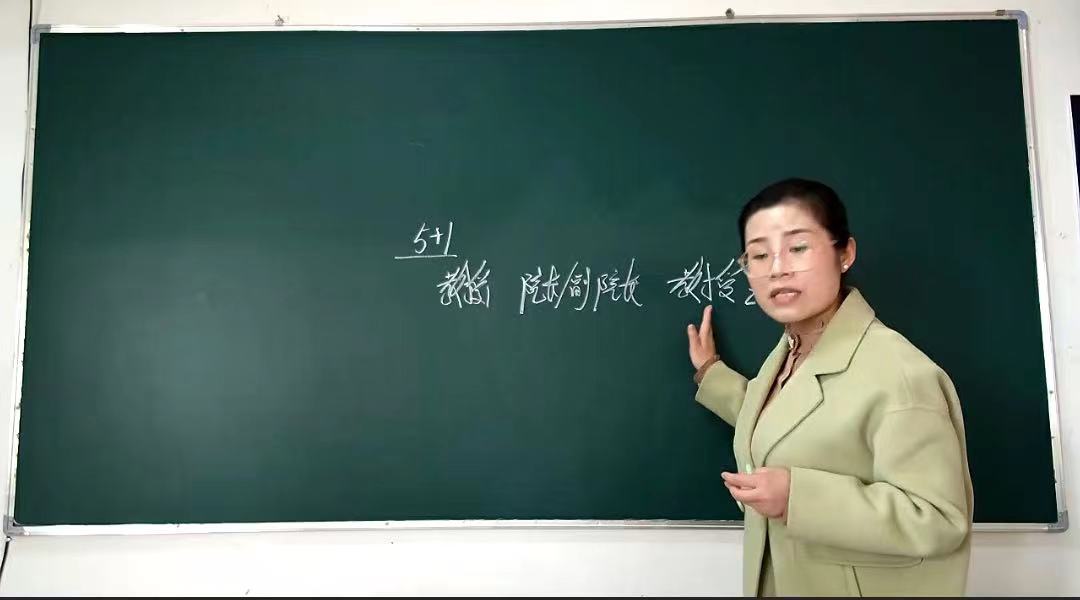 5+1
教授 院长/副院长 教授